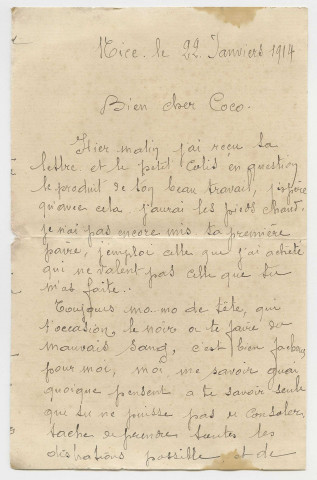 Nice. le 22 Janviers 1914
Bien cher Coco.
Hier matin j'ai reçu ta
lettre et le petit Colis en question
le produit de ton beau travail, j'espère
qu'avec cela j'aurai les pieds chaud.
je n'ai pas encore mis ta première
paire, j'emploi celle que j'ai acheté
qui ne valent pas celle que tu
m'as faite.
Toujours de tête, qui
t'occasion le noire et te faire du
mauvais sang, c'est bien facheux
pour moi, moi me savoir
quoique pensent a te savoir seule
que tu ne puisse pas te Consoler
tache de prendre toutes les
distrations possible et de